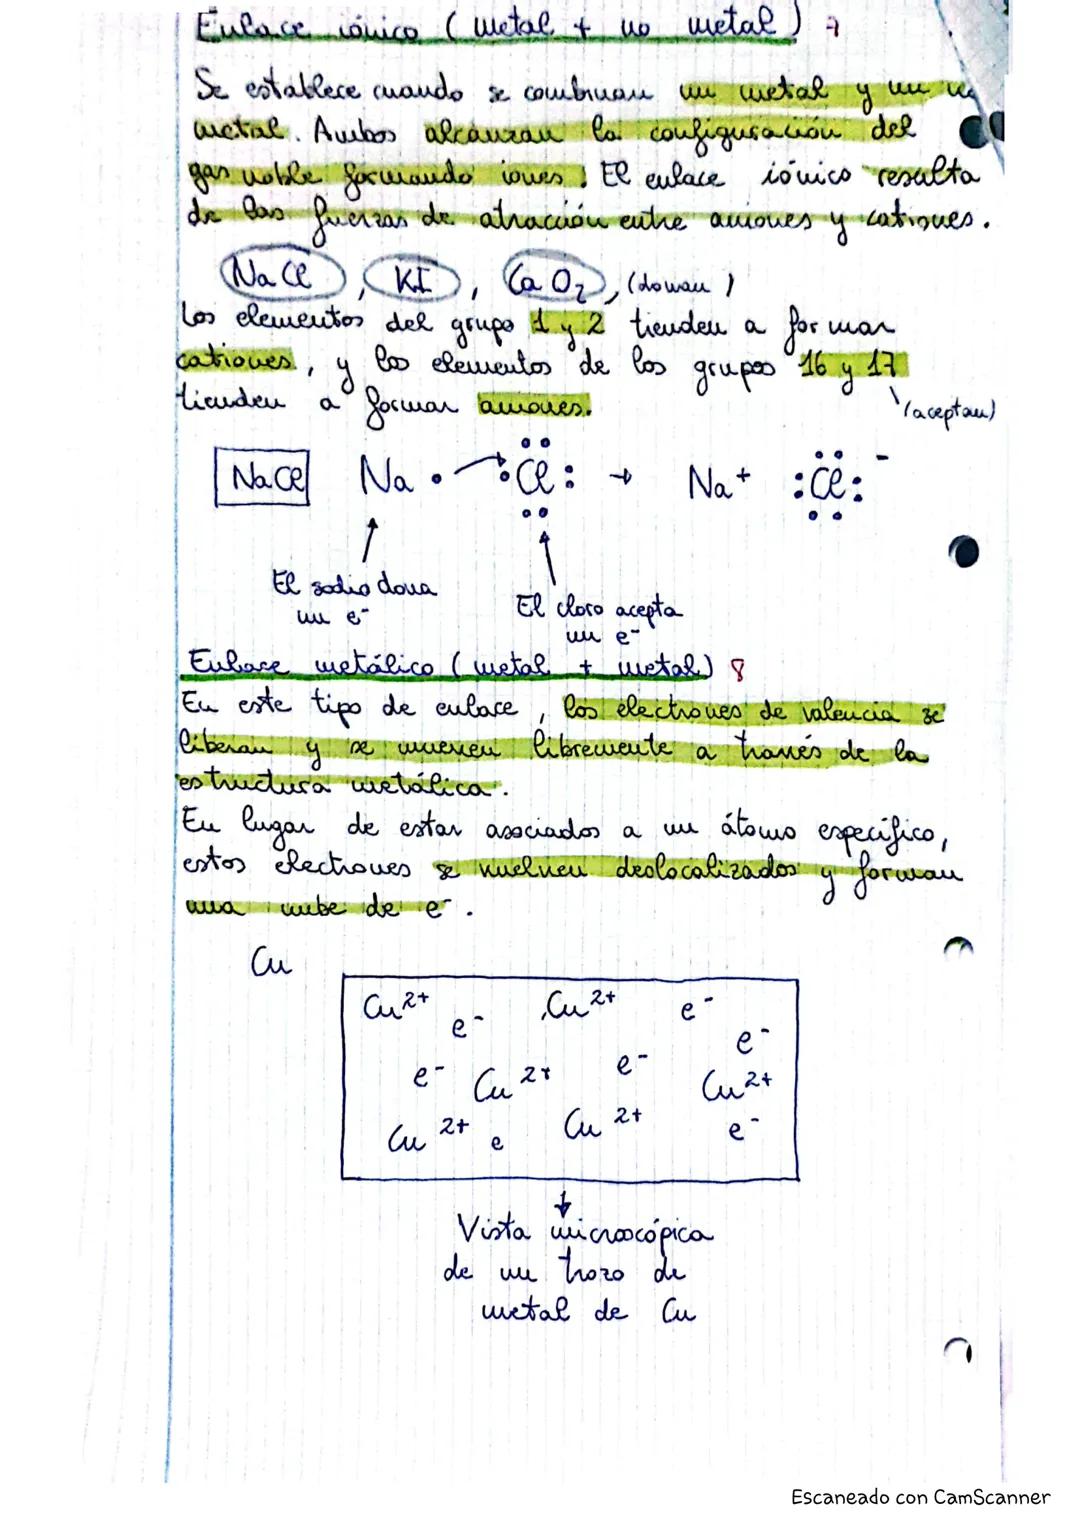 Enlace iónico (metal + no metal) 7
Se establece cuando se combinan un metal y un no
metal. Ambos alcanzan la configuración del
gas noble formando iones. El enlace iónico resulta
de las fuerzas de atracción entre aniones y cationes.
NaCl, KI, CaO2, (donan)
Los elementos del grupo 1 y 2 tienden a formar
cationes, y los elementos de los grupos 16 y 17
tienden a formar aniones. (aceptan)
NaCl Na · → :Cl: → Na+ :Cl:-
El sodio dona
un e-
El cloro acepta
un e-
Enlace metálico (metal + metal) 8
En este tipo de enlace, los electrones de valencia se
liberan y se mueven libremente a través de la
estructura metálica.
En lugar de estar asociados a un átomo específico,
estos electrones se vuelven deslocalizados y forman
una nube de e-.
Cu
Cu2+ e- Cu2+ e-
e-
e- Cu2+ e- Cu2+
Cu2+ e Cu2+ e-
Vista microscópica
de un trozo de
metal de Cu
Escaneado con CamScanner